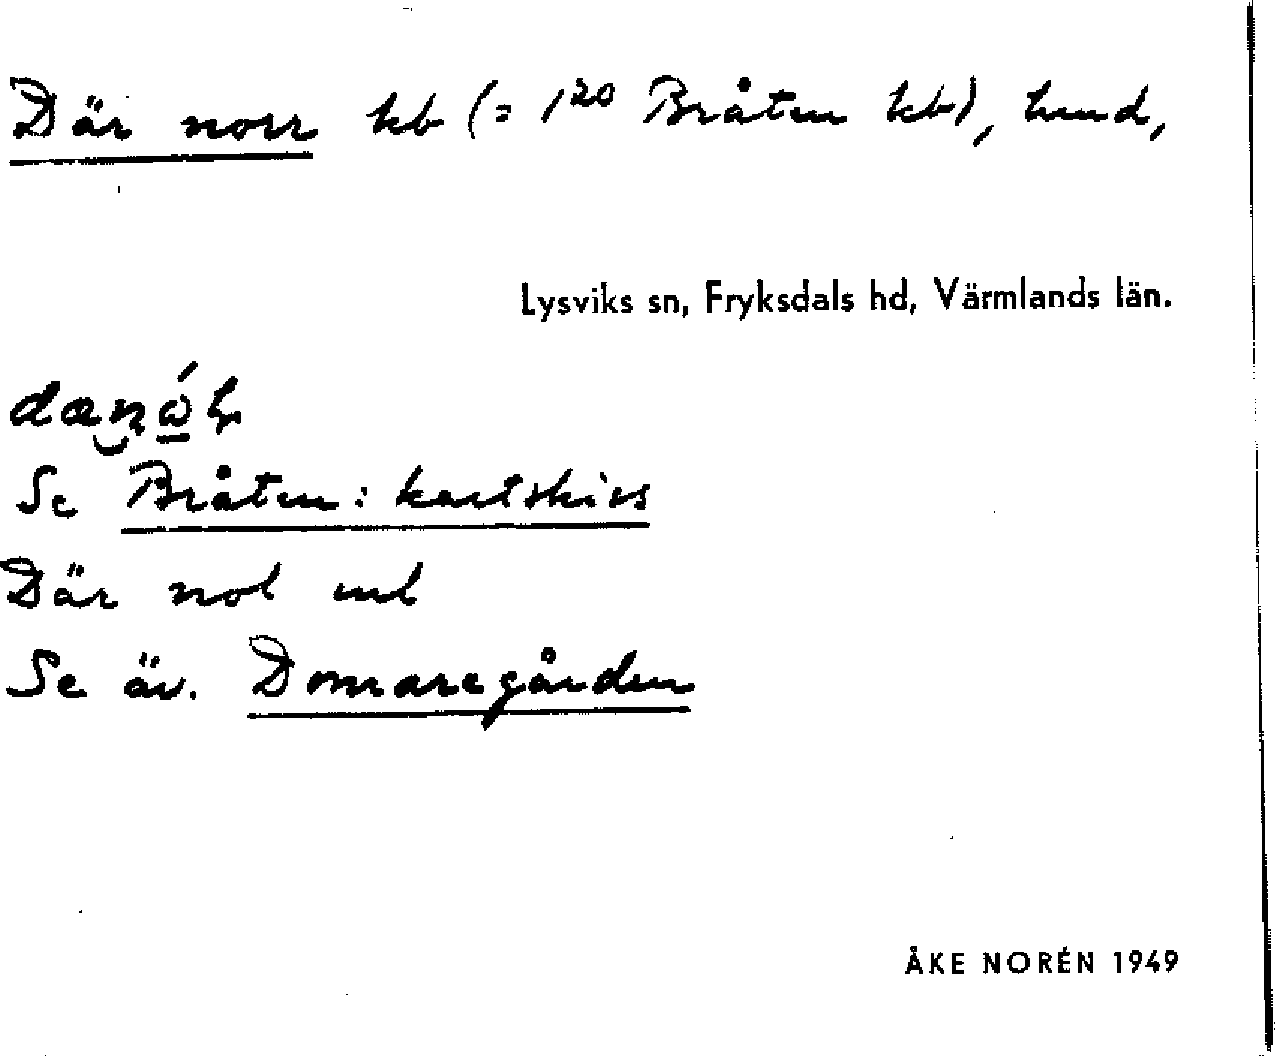 Där norr kb (= 1²⁰ Bråten kb), hmd,
Lysviks sn, Fryksdals hd, Värmlands län.
Se Bråten: kartskiss
Där nol ml
Se äv. Domaregården
ÅKE NORÉN 1949